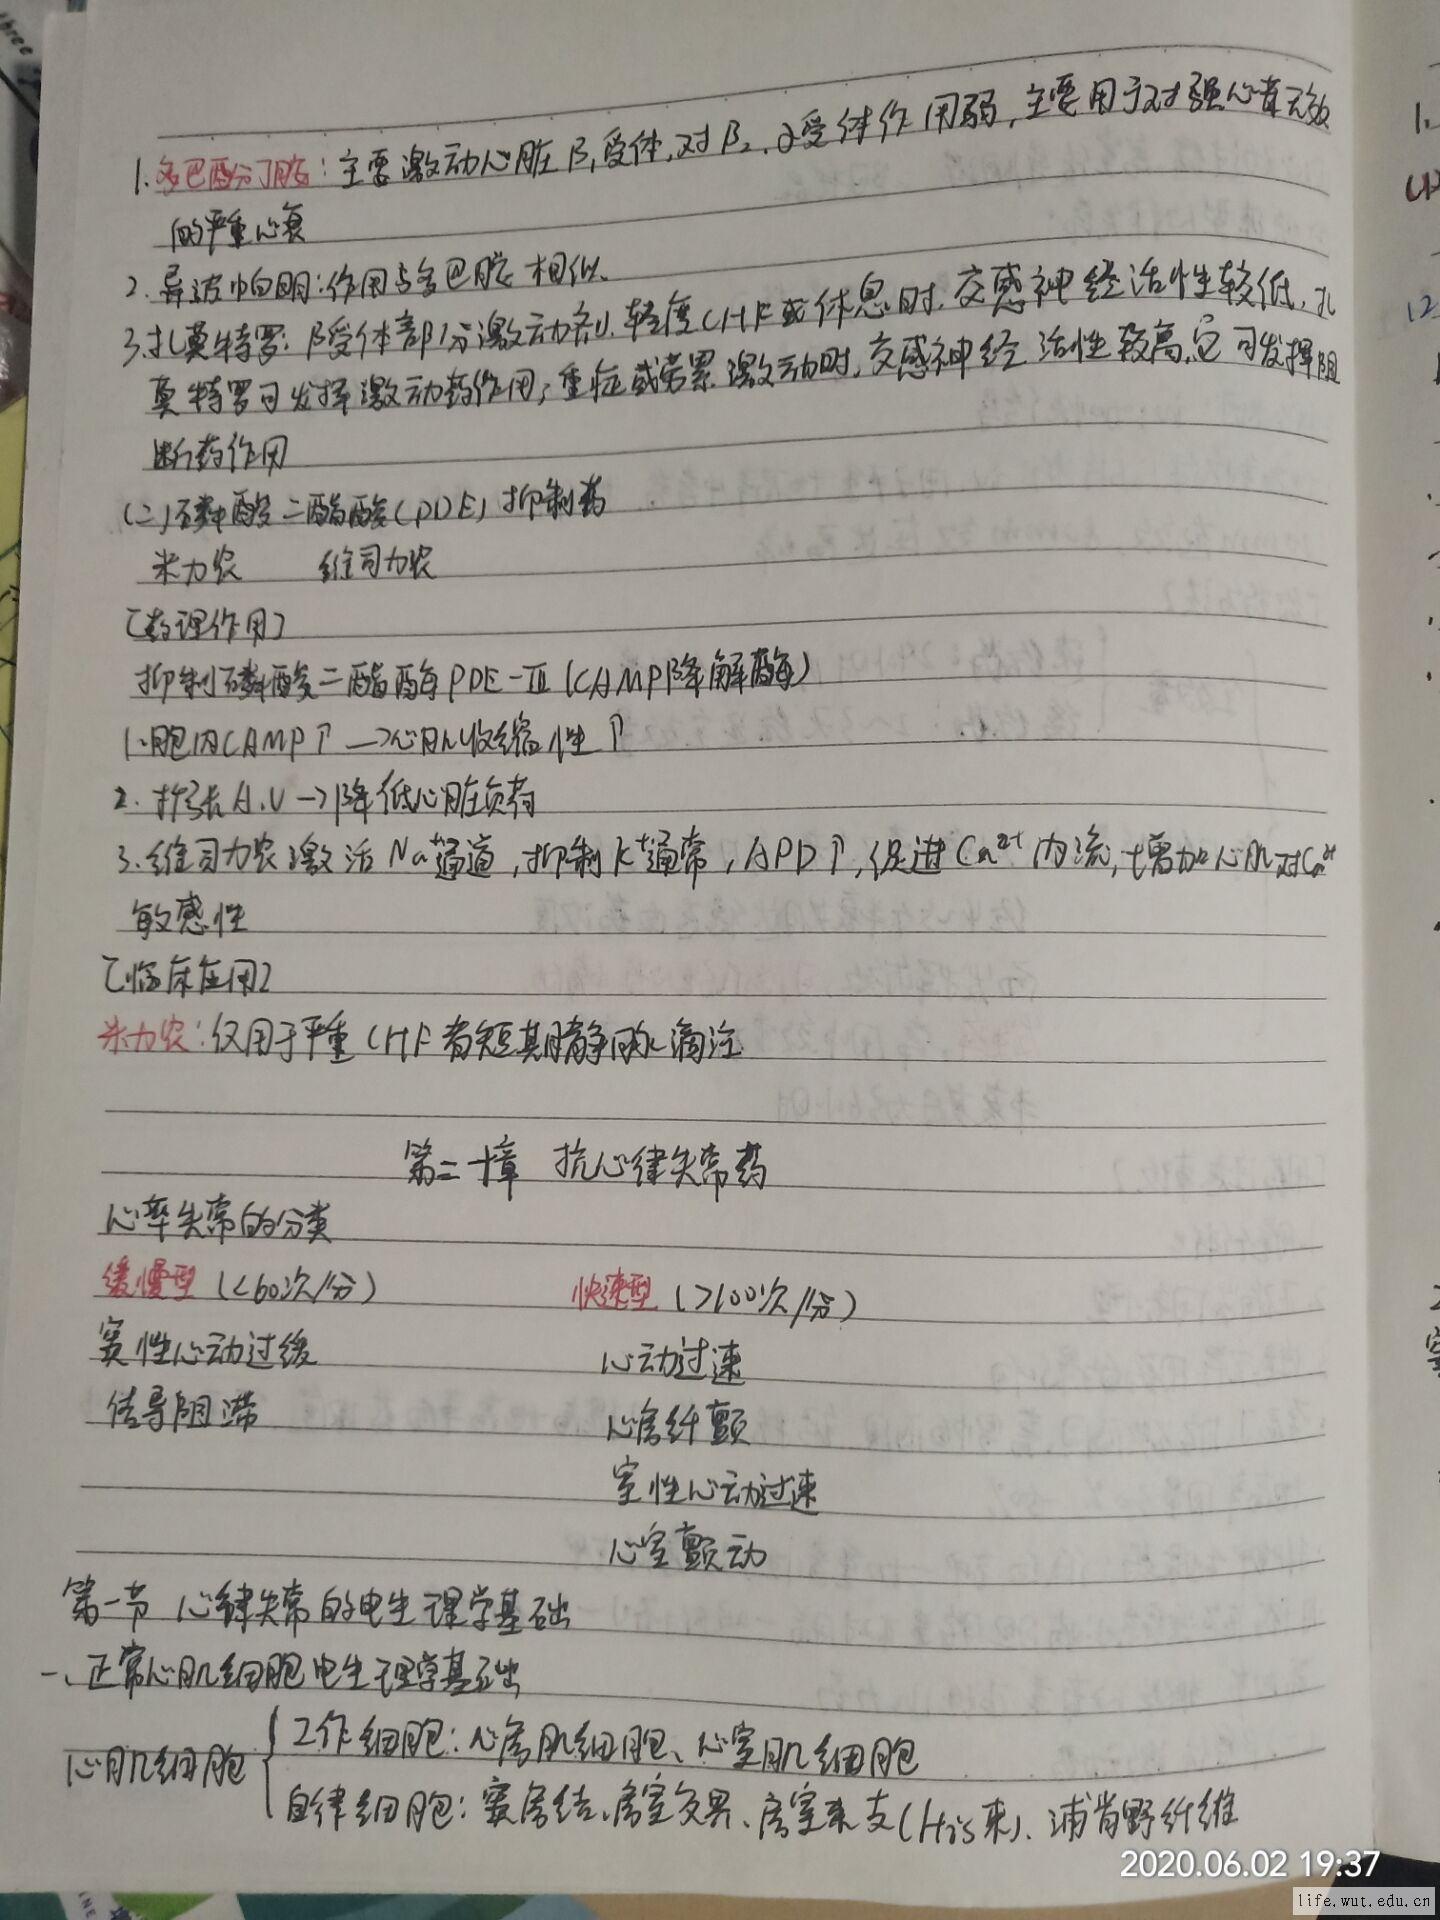 1. 多巴酚丁胺：主要激动心脏β₁受体，对β₂、α受体作用弱，主要用于对强心苷无效
的严重心衰
2. 异波帕明：作用与多巴胺相似、
3. 扎莫特罗：β受体部分激动剂、轻度CHF或休息时，交感神经活性较低，扎
莫特罗可发挥激动药作用；重症或劳累激动时，交感神经活性较高，它可发挥阻
断药作用
(二)磷酸二酯酶(PDE)抑制药
米力农 维司力农
[药理作用]
抑制磷酸二酯酶PDE-Ⅲ(CAMP降解酶)
1. 胞内CAMP↑→心肌收缩性↑
2. 扩张A.V→降低心脏负荷
3. 维司力农激活Na⁺通道，抑制K⁺通常，APD↑，促进Ca²⁺内流，增加心肌对Ca²⁺
敏感性
[临床应用]
米力农：仅用于严重CHF者短期静脉滴注
第二十章 抗心律失常药
心率失常的分类
缓慢型(<60次/分) 快速型(>100次/分)
窦性心动过缓 心动过速
传导阻滞 心房纤颤
室性心动过速
心室颤动
第一节 心律失常的电生理学基础
一、正常心肌细胞电生理学基础
心肌细胞
工作细胞：心房肌细胞、心室肌细胞
自律细胞：窦房结、房室交界、房室束支(His束)、浦肯野纤维
2020.06.02 19:37
life.wut.edu.cn